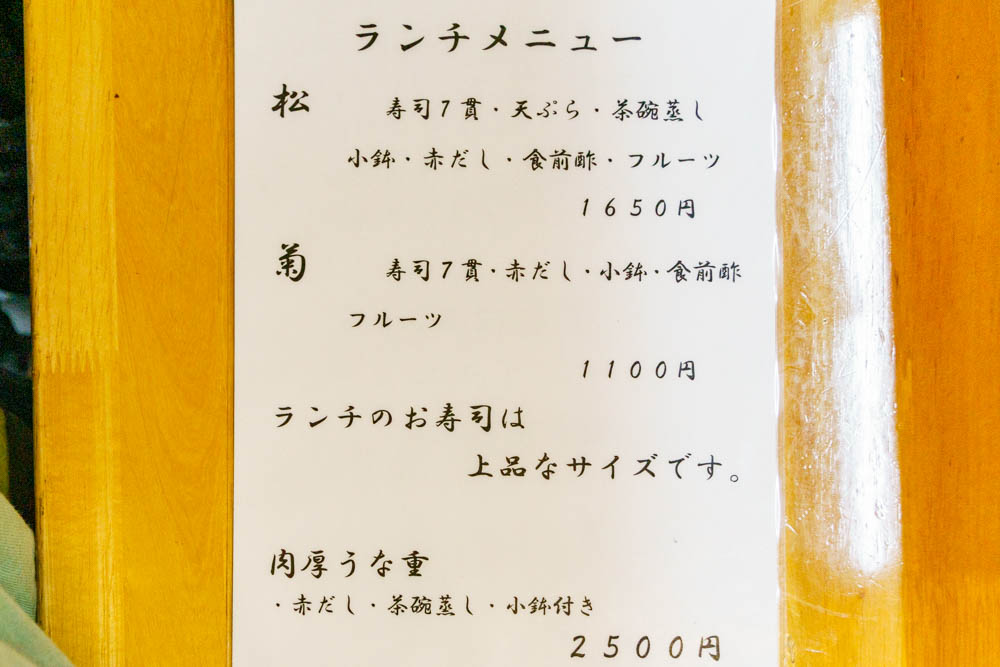 ランチメニュー
松　寿司7貫・天ぷら・茶碗蒸し
小鉢・赤だし・食前酢・フルーツ
1650円
菊　寿司7貫・赤だし・小鉢・食前酢
フルーツ
1100円
ランチのお寿司は
上品なサイズです。
肉厚うな重
・赤だし・茶碗蒸し・小鉢付き
2500円